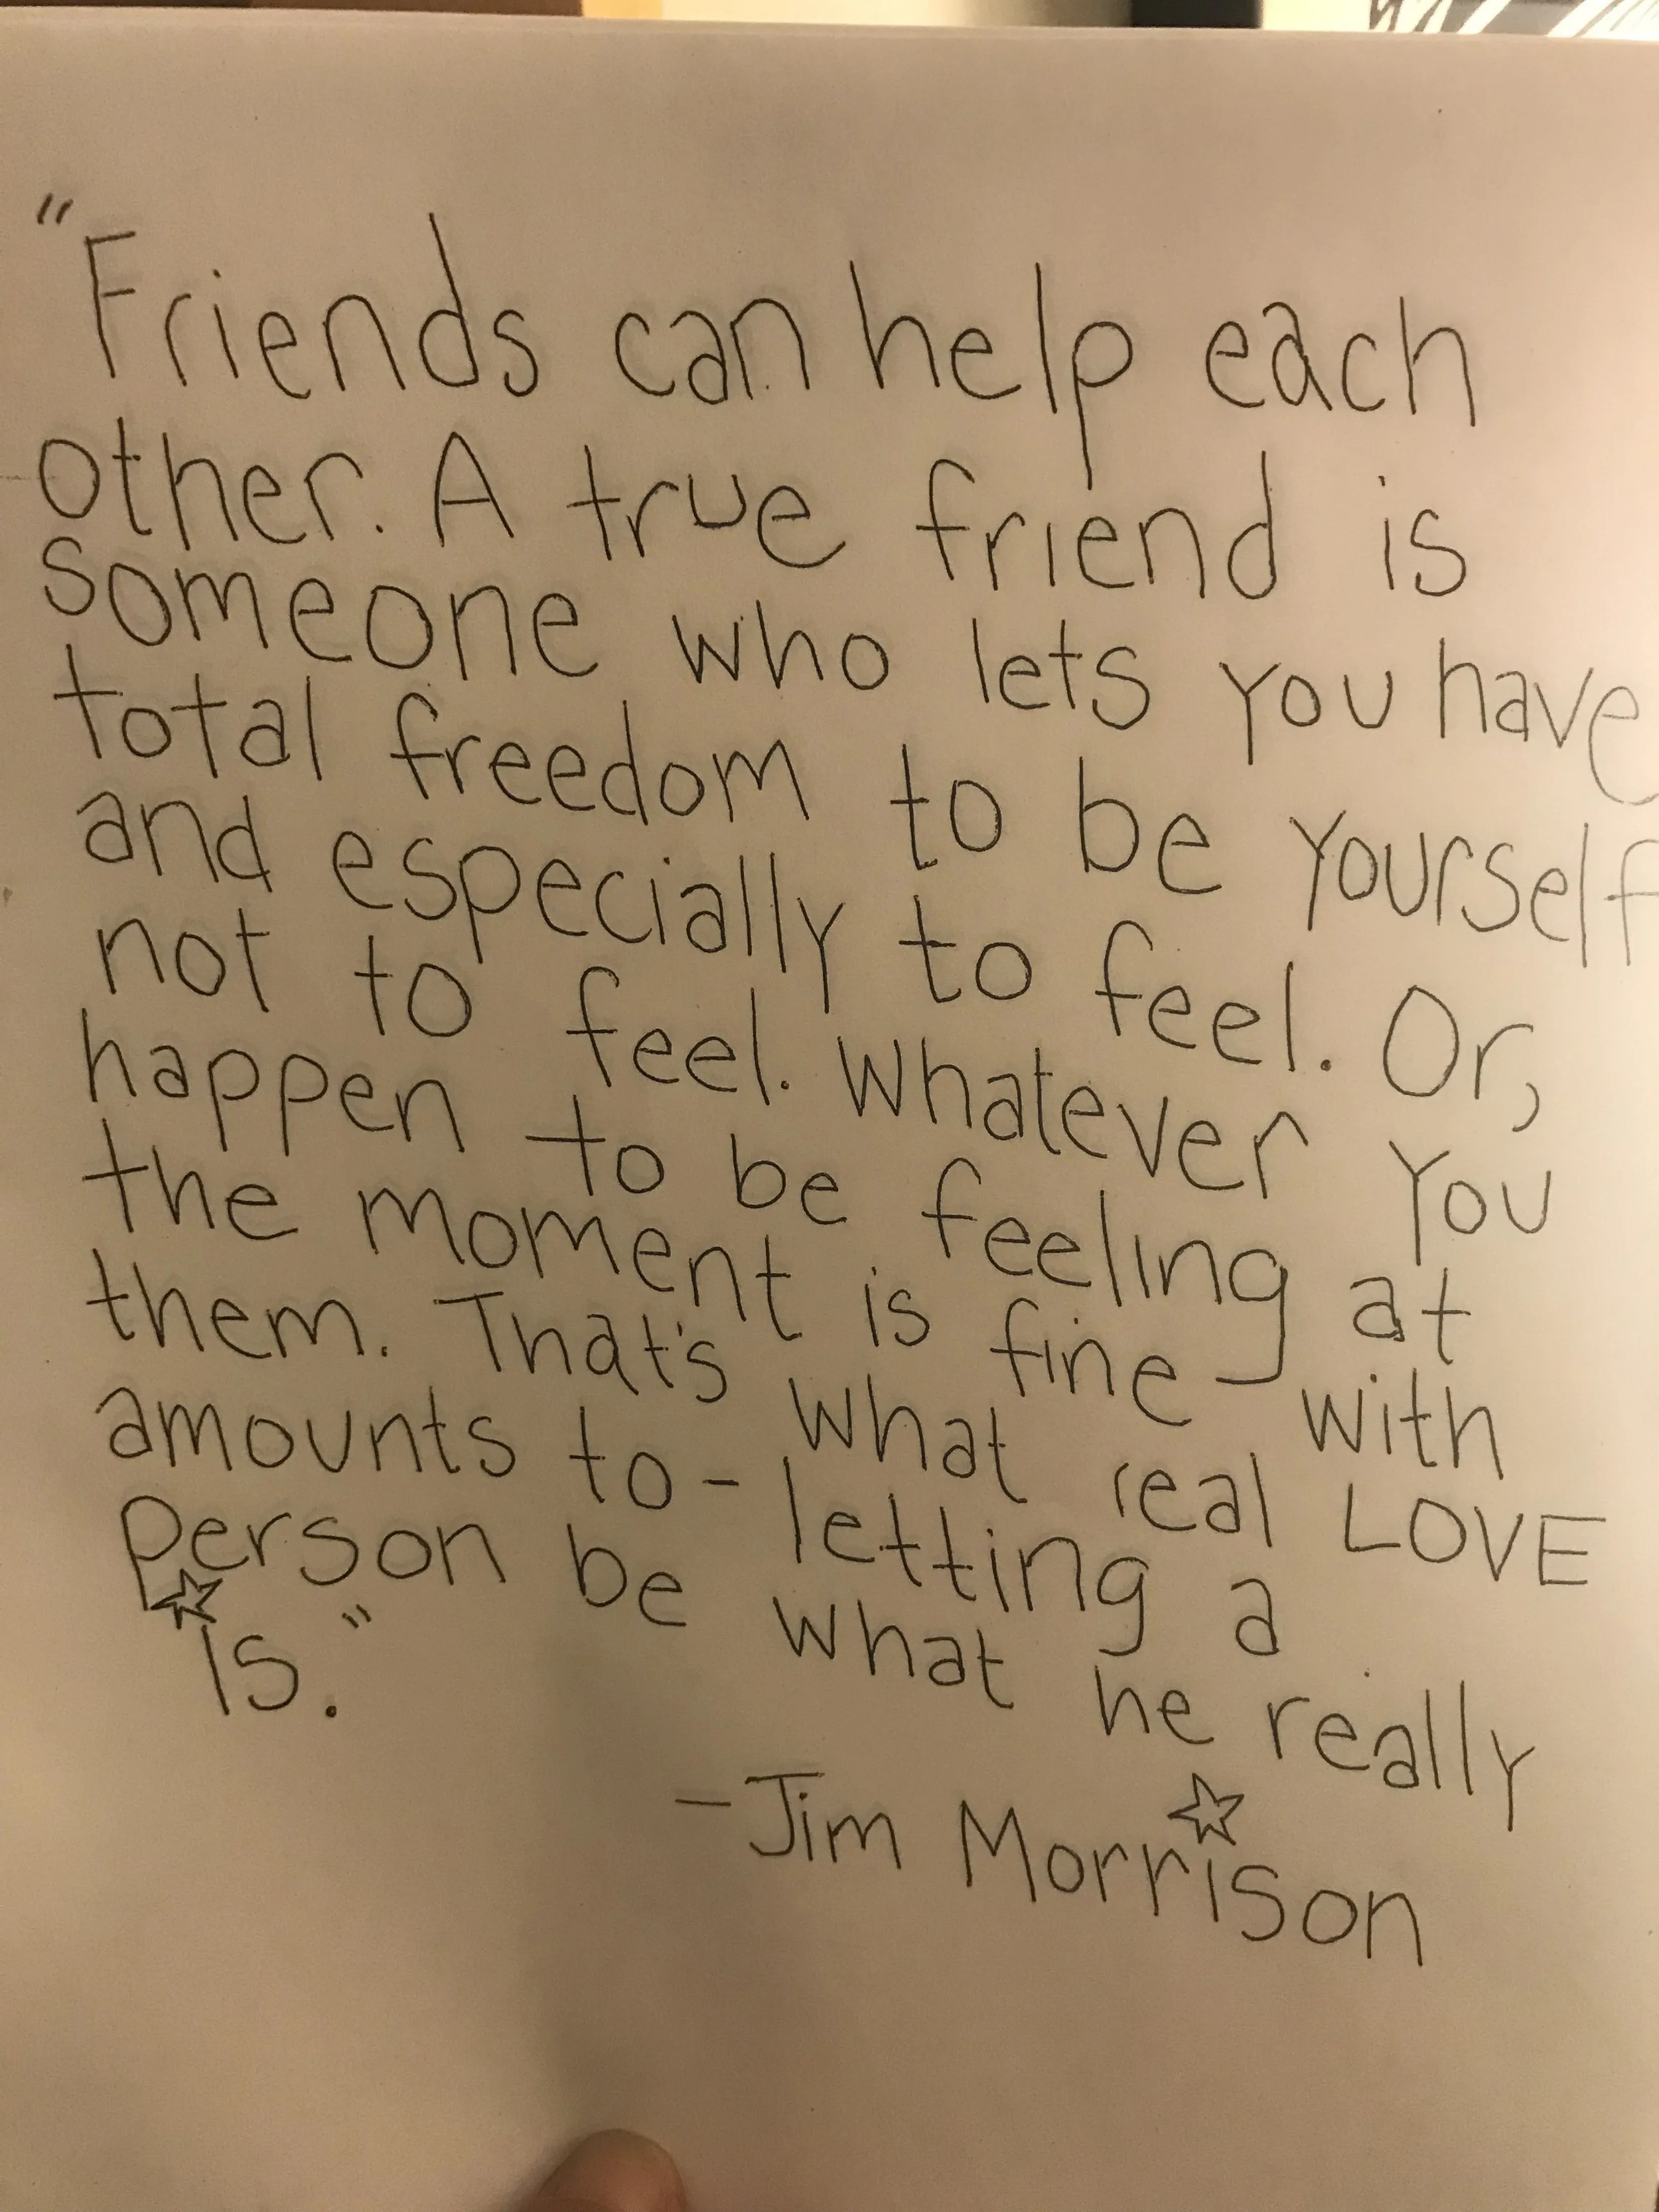 "Friends can help each
other. A true friend is
someone who lets you have
total freedom to be yourself
and especially to feel. Or,
not to feel. Whatever you
happen to be feeling at
the moment is fine with
them. That's what real LOVE
amounts to - letting a
person be what he really
is."
- Jim Morrison